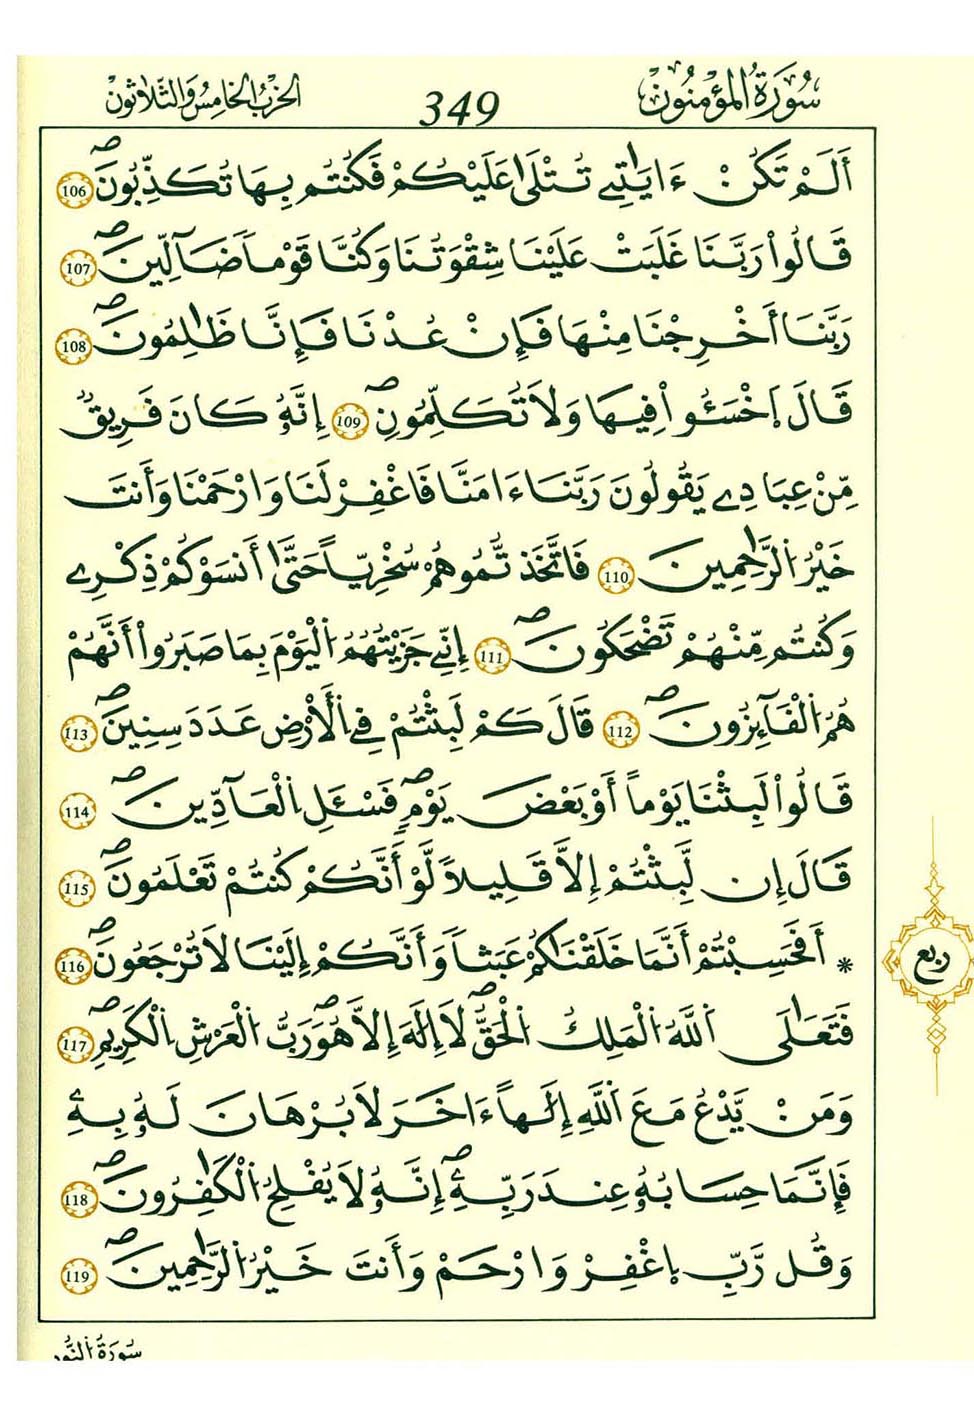 سُورَةُ الْمُؤْمِنُونَ
349
الحِزْبُ الخَامِسُ وَالثَّلَاثُونْ
أَلَمْ تَكُنْ ءَايَٰتِے تُتْلَىٰ عَلَيْكُمْ فَكُنتُم بِهَا تُكَذِّبُونَۖ 106
قَالُواْ رَبَّنَا غَلَبَتْ عَلَيْنَا شِقْوَتُنَا وَكُنَّا قَوْماٗ ضَآلِّينَۖ 107
رَبَّنَا أَخْرِجْنَا مِنْهَا فَإِنْ عُدْنَا فَإِنَّا ظَٰلِمُونَۖ 108
قَالَ اَخْسَـُٔواْ فِيهَا وَلَا تُكَلِّمُونِۖ 109 إِنَّهُۥ كَانَ فَرِيقٞ
مِّنْ عِبَادِے يَقُولُونَ رَبَّنَا ءَامَنَّا فَاغْفِرْ لَنَا وَارْحَمْنَا وَأَنتَ
خَيْرُ اُلرَّٰحِمِينَ 110 فَاتَّخَذتُّمُوهُمْ سُخْرِيّاً حَتَّىٰ أَنسَوْكُمْ ذِكْرِے
وَكُنتُم مِّنْهُمْ تَضْحَكُونَۖ 111 إِنِّے جَزَيْتُهُمُ اُلْيَوْمَ بِمَا صَبَرُواْ أَنَّهُمْ
هُمُ اُلْفَآئِزُونَۖ 112 قَالَ كَمْ لَبِثْتُمْ فِے اِلْأَرْضِ عَدَدَ سِنِينَۖ 113
قَالُواْ لَبِثْنَا يَوْماً أَوْ بَعْضَ يَوْمٖۖ فَسْـَٔلِ اِلْعَآدِّينَۖ 114
قَالَ إِن لَّبِثْتُمْ إِلَّا قَلِيلاٗ لَّوْ أَنَّكُمْ كُنتُمْ تَعْلَمُونَۖ 115
* أَفَحَسِبْتُمْ أَنَّمَا خَلَقْنَٰكُمْ عَبَثاٗ وَأَنَّكُمْ إِلَيْنَا لَا تُرْجَعُونَۖ 116
فَتَعَٰلَى اَللَّهُ اُلْمَلِكُ اُلْحَقُّۖ لَا إِلَٰهَ إِلَّا هُوَۖ رَبُّ اُلْعَرْشِ اِلْكَرِيمِۖ 117
وَمَنْ يَّدْعُ مَعَ اَللَّهِ إِلَٰهاً ءَاخَرَ لَا بُرْهَانَ لَهُۥ بِهِۦ
فَإِنَّمَا حِسَابُهُۥ عِندَ رَبِّهِۦۖ إِنَّهُۥ لَا يُفْلِحُ اُلْكَٰفِرُونَۖ 118
وَقُل رَّبِّ اِغْفِرْ وَارْحَمْ وَأَنتَ خَيْرُ اُلرَّٰحِمِينَۖ 119
ربع
سُورَةُ النُّور